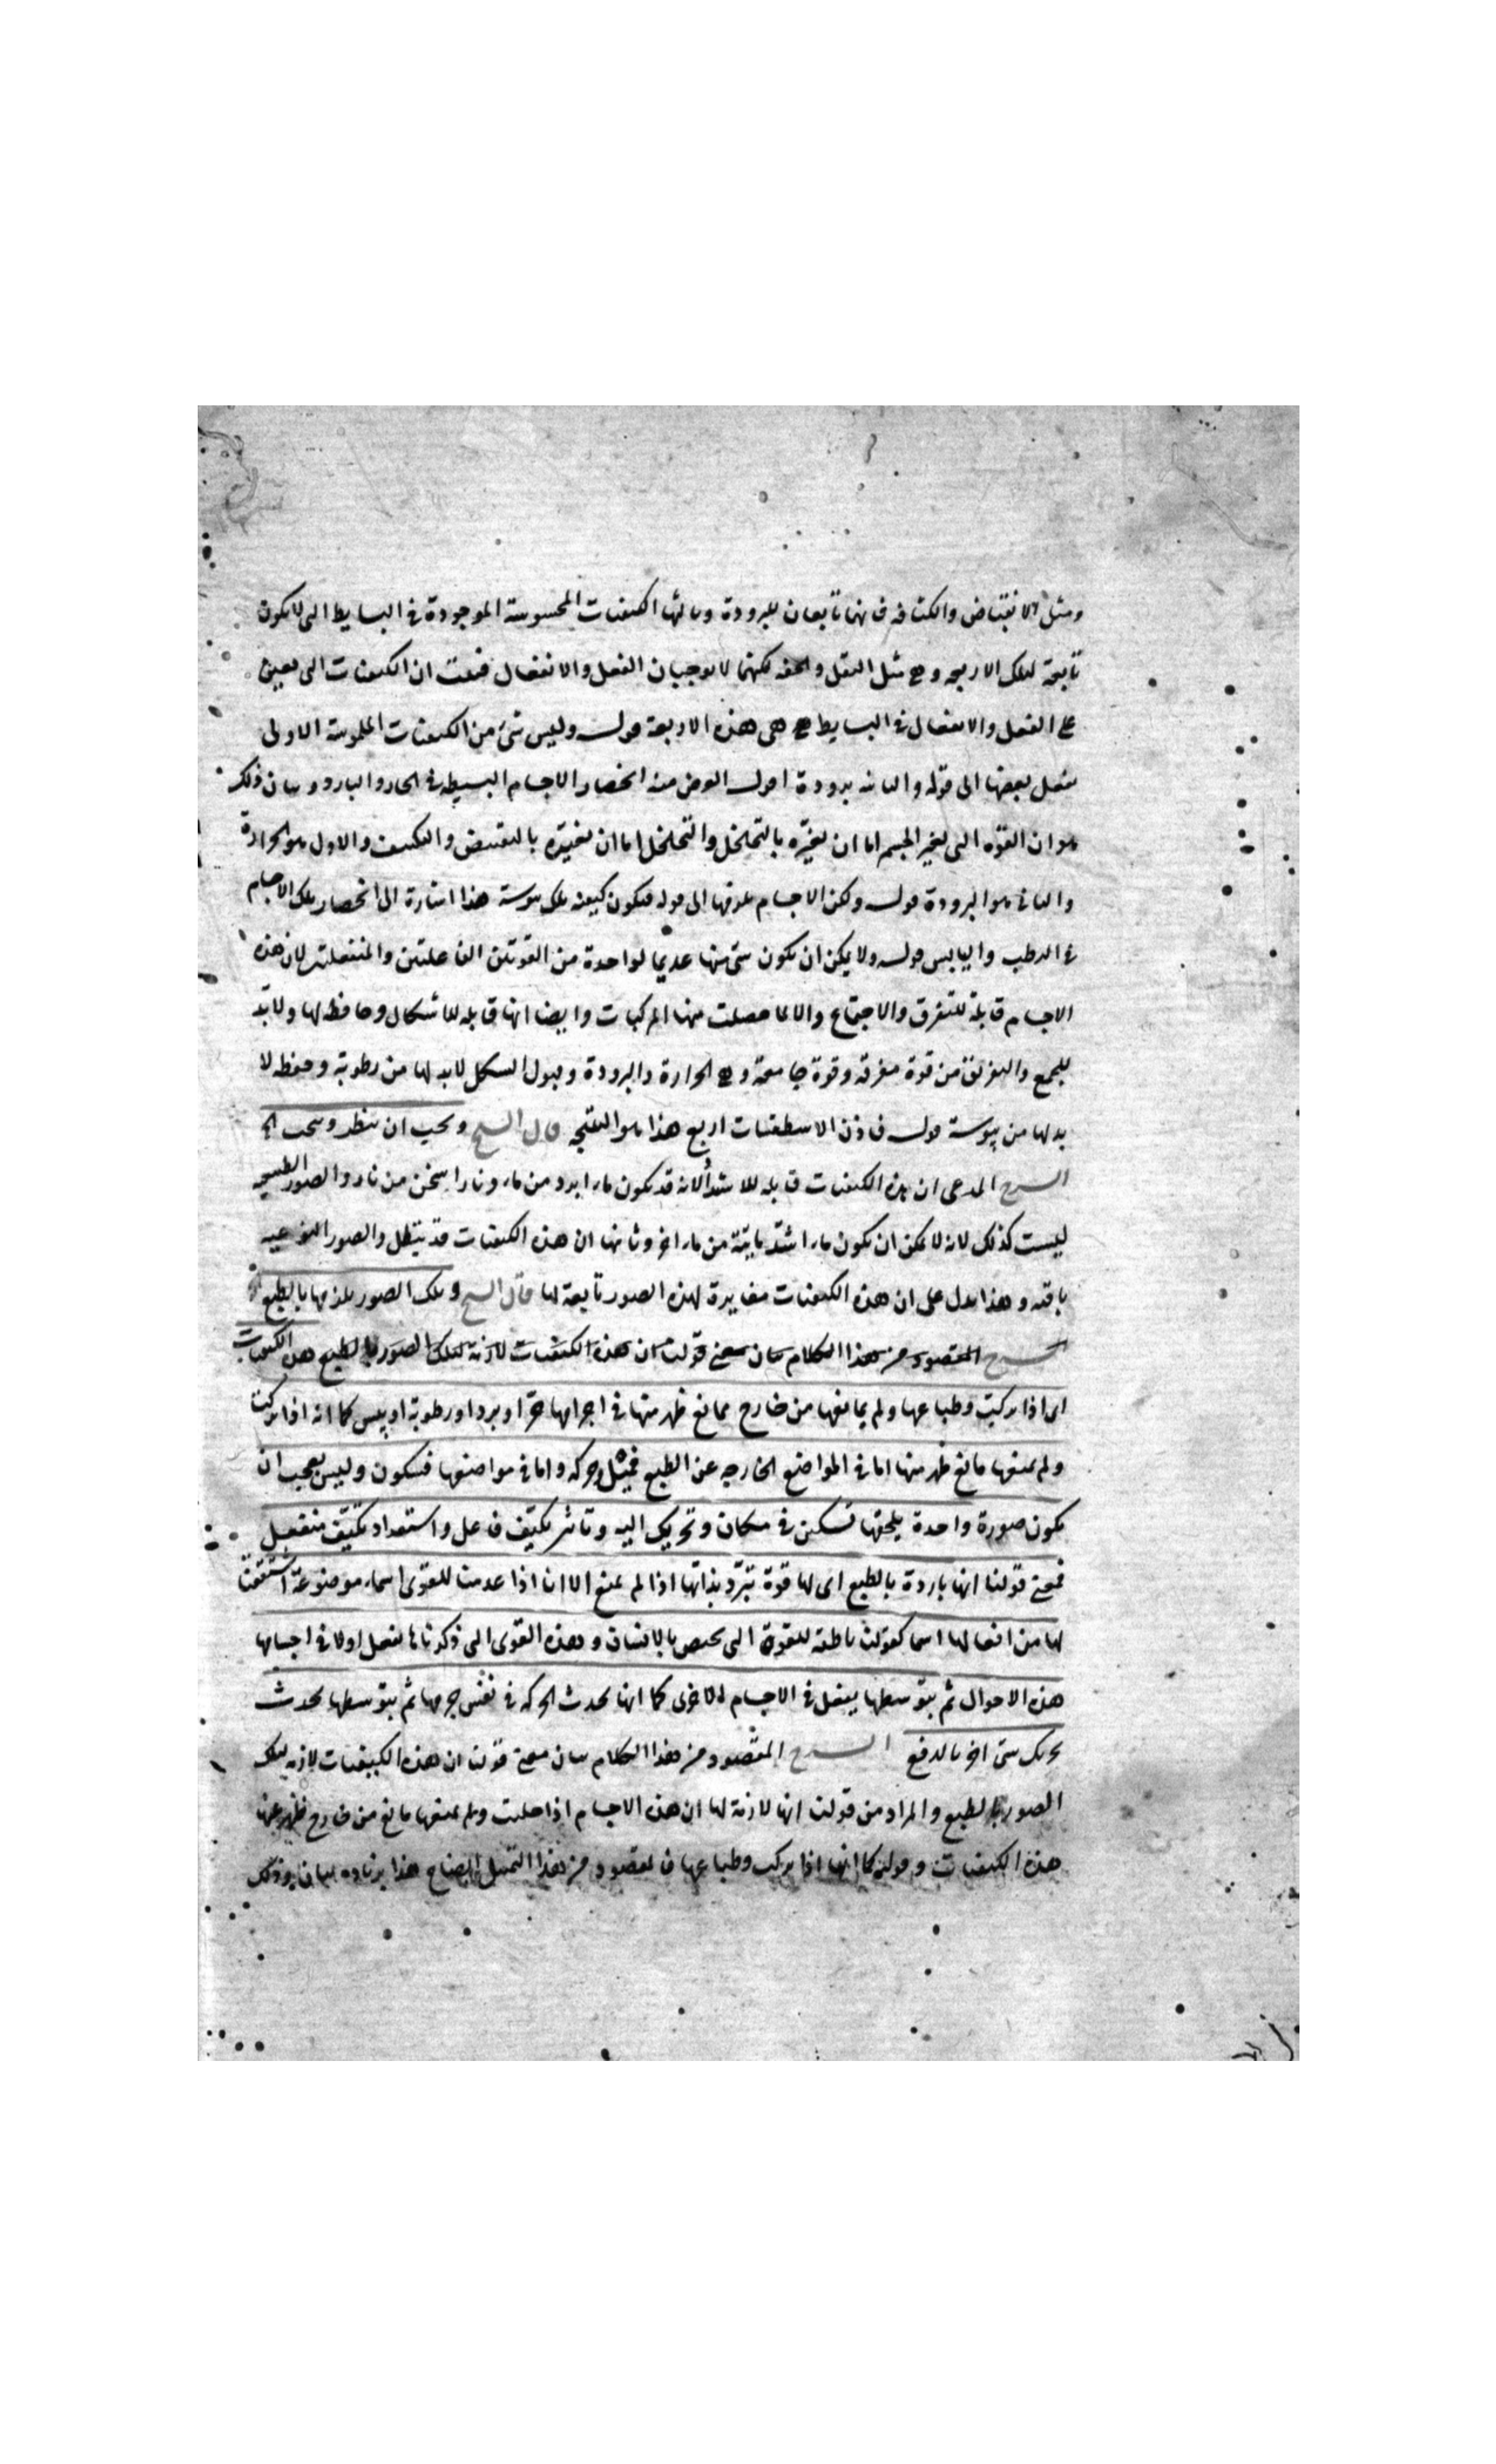 ومثل الانقباض والكثافة فانهما تابعان للبرودة وثالثها الكيفيات المحسوسة الموجودة في البسايط التي لا يكون
تابعة لتلك الاربعة وهي مثل الثقل والخفة لكنهما لا يوجبان الفعل والانفعال فثبت ان الكيفيات التي تعين
على الفعل والانفعال في البسايط هي هذه الاربعة قوله وليس شئ من الكيفيات الملموسة الاولى
بعضها الى قوله والثانية برودة اقول الغرض منه انحصار الاجسام البسيطة في الحار والبارد وبيان ذلك
هو ان القوة التي تغير الجسم اما ان تغيره بالتحلحل والتخلخل اما ان تغيره بالتقبيض والتكثيف والاول هو الحرارة
والثاني هو البرودة قوله ولكن الاجسام الى قوله فيكون كيفية تلك يبوسة هذا اشارة الى انحصار تلك الاجسام
في الرطب واليابس قوله ولا يمكن ان يكون شئ منها عديما لواحدة من القوتين الفاعلتين والمنفعلتين لان هذه
الاجسام قابلة للتفرق والاجتماع والا لما حصلت منها المركبات وايضا انها قابلة للاشكال وحافظة لها ولا بد
للجمع والتفريق من قوة مفرقة وقوة جامعة وهي الحرارة والبرودة وقبول الشكل لا بد لها من رطوبة وحفظه لا
بد لها من يبوسة قوله فاذن الاسطقسات اربع هذا هو النتيجة قال الشيخ ويجب ان ننظر
الشرح المدعى ان هذه الكيفيات قابلة للاشتداد لانه قد يكون ماء ابرد من ماء ونار اسخن من نار والصور الطبيعية
ليست كذلك لانه لا يمكن ان يكون ماء اشد مائية من ماء اخر وثانيها ان هذه الكيفيات قد تبطل والصور النوعية
باقية وهذا يدل على ان هذه الكيفيات مغايرة لهذه الصور تابعة لها قال الشيخ وتلك الصور يلزمها بالطبع
الشرح المقصود من هذا الكلام بيان معنى قولنا ان هذه الكيفيات لازمة لتلك الصور بالطبع هذه الكيفيات
اى اذا تركت وطباعها ولم يمانعها من خارج ممانع ظهر منها في اجرامها حرا وبرد او رطوبة او يبس كما انه اذا تركت
ولم يمنعها مانع ظهر منها اما في المواضع الخارجة عن الطبع فميل وحركة واما في مواضعها فسكون وليس بعجب ان
يكون صورة واحدة يلحقها تسكين في مكان وتحريك اليه وتاثر بكيف فاعل واستعداد بكيف منفعل
فمعنى قولنا انها باردة بالطبع اى لها قوة تبرد بذاتها اذا لم يمنع الا انا اذا عدمنا للقوى اسماء موضوعة اشتققنا
لها من افعالها اسما كقولنا ناطقة للقوة التي تختص بالانسان وهذه القوى التي ذكرناها تفعل اولا في اجسامها
هذه الاحوال ثم بتوسطها يفعل في الاجسام الاخرى كما انها تحدث الحركة في نفس جرمها ثم بتوسطها تحدث
تحريك شئ اخر بالدفع الشرح المقصود من هذا الكلام بيان معنى قولنا ان هذه الكيفيات لازمة لتلك
الصور بالطبع والمراد من قولنا انها لازمة لها ان هذه الاجسام اذا خليت ولم يمنعها مانع من خارج ظهر عنها
هذه الكيفيات وقوله كما انها اذا تركت وطباعها فالمقصود من هذا التمثيل ايضاح هذا بزيادة بيان وذلك